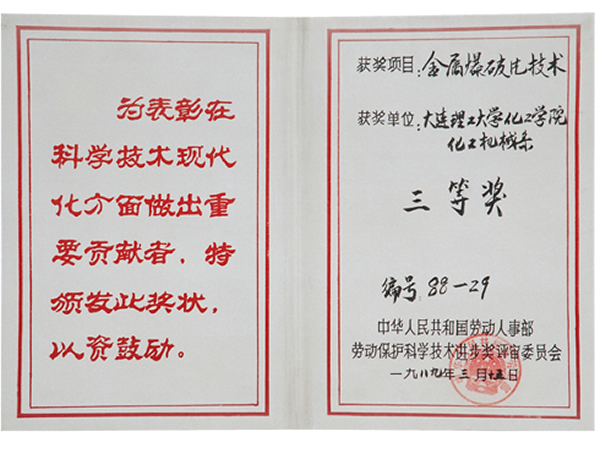 为表彰在
科学技术现代
化方面做出重
要贡献者，特
颁发此奖状，
以资鼓励。
获奖项目：金属爆破片技术
获奖单位：大连理工大学化工学院
化工机械系
三等奖
编号 88-29
中华人民共和国劳动人事部
劳动保护科学技术进步奖评审委员会
一九八九年三月十五日